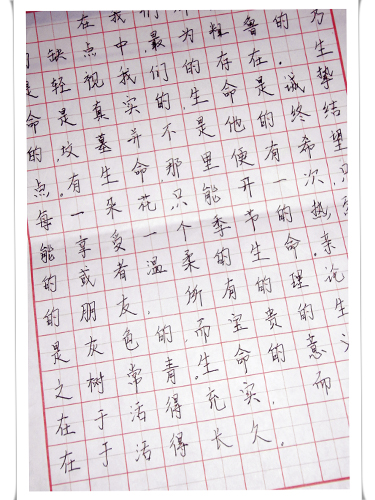 在我们
缺点中,最为粗鲁的乃
是轻视我们的存在.生
命是真实的,生命是诚挚
的,坟墓并不是他的终结
点.有生命,那里便有希望
每一朵花,只能开一次,只
能享受一个季节的热
的或者温柔的生命.亲
的朋友,所有的理论
是灰色的,而宝贵的生
之树常青.生命的意
在于活得充实,而
在于活得长久.